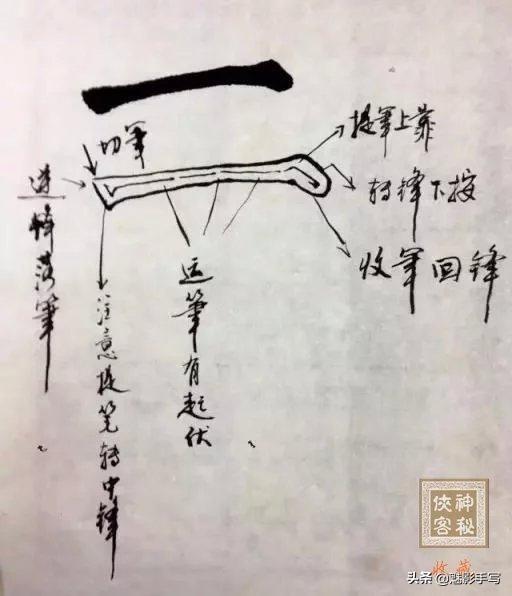 一
切笔
逆锋落笔
注意提笔转中锋
运笔有起伏
提笔上靠
转锋下按
收笔回锋
神秘
侠客
收藏
头条@魅影手写